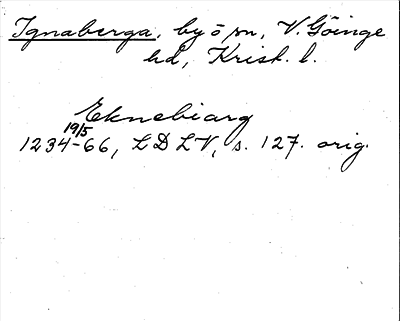 Ignaberga, by o sn, V. Göinge
hd, Krist. l.
Eknebiarg
19/5
1234-66, LDLV, s. 127. orig.